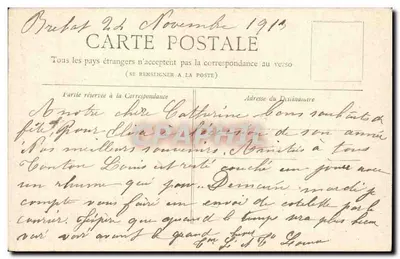 Brehat 24 Novembre 1913
CARTE POSTALE
Tous les pays étrangers n'acceptent pas la correspondance au verso
(SE RENSEIGNER A LA POSTE)
Partie réservée à la Correspondance
Adresse du Destinataire
A notre chère Catherine bons souhaits de
fête pour de son année
Nos meilleurs souvenirs. Amitiés à tous
Tonton Louis est resté couché un jour avec
un rhume qui Demain mardi je
compte vous faire un envoi de cotelette par le
courrier. J'espère que quand le temps sera plus bien
voir avant le grand